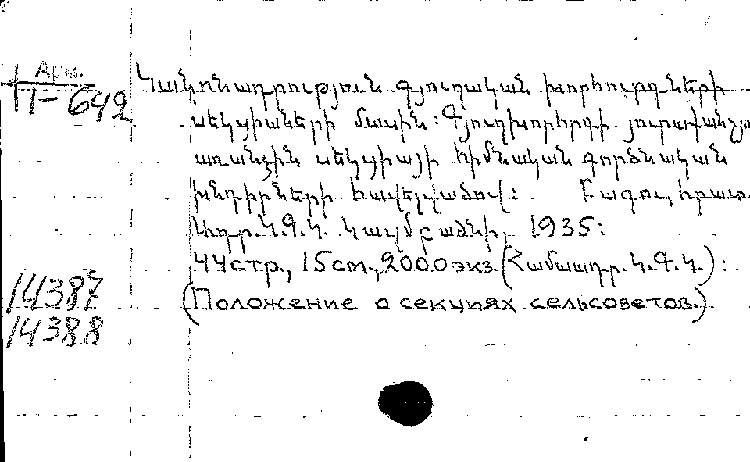 Арм.
11-642
Կանոնադրություն գյուղական խորհուրդների
սեկցիաների մասին: Գյուղխորհրդի յուրաքանչյու
առանձին սեկցիայի հիմնական գործնական
խնդիրների հավելվածով: Բագու, հրատ.
Կդր. Կ.Գ.Կ. 1935:
44стр., 15cm., 2000экз. (Համաադր. Կ.Գ.Կ.):
14387
(Положение о секциях сельсоветов.)
14388